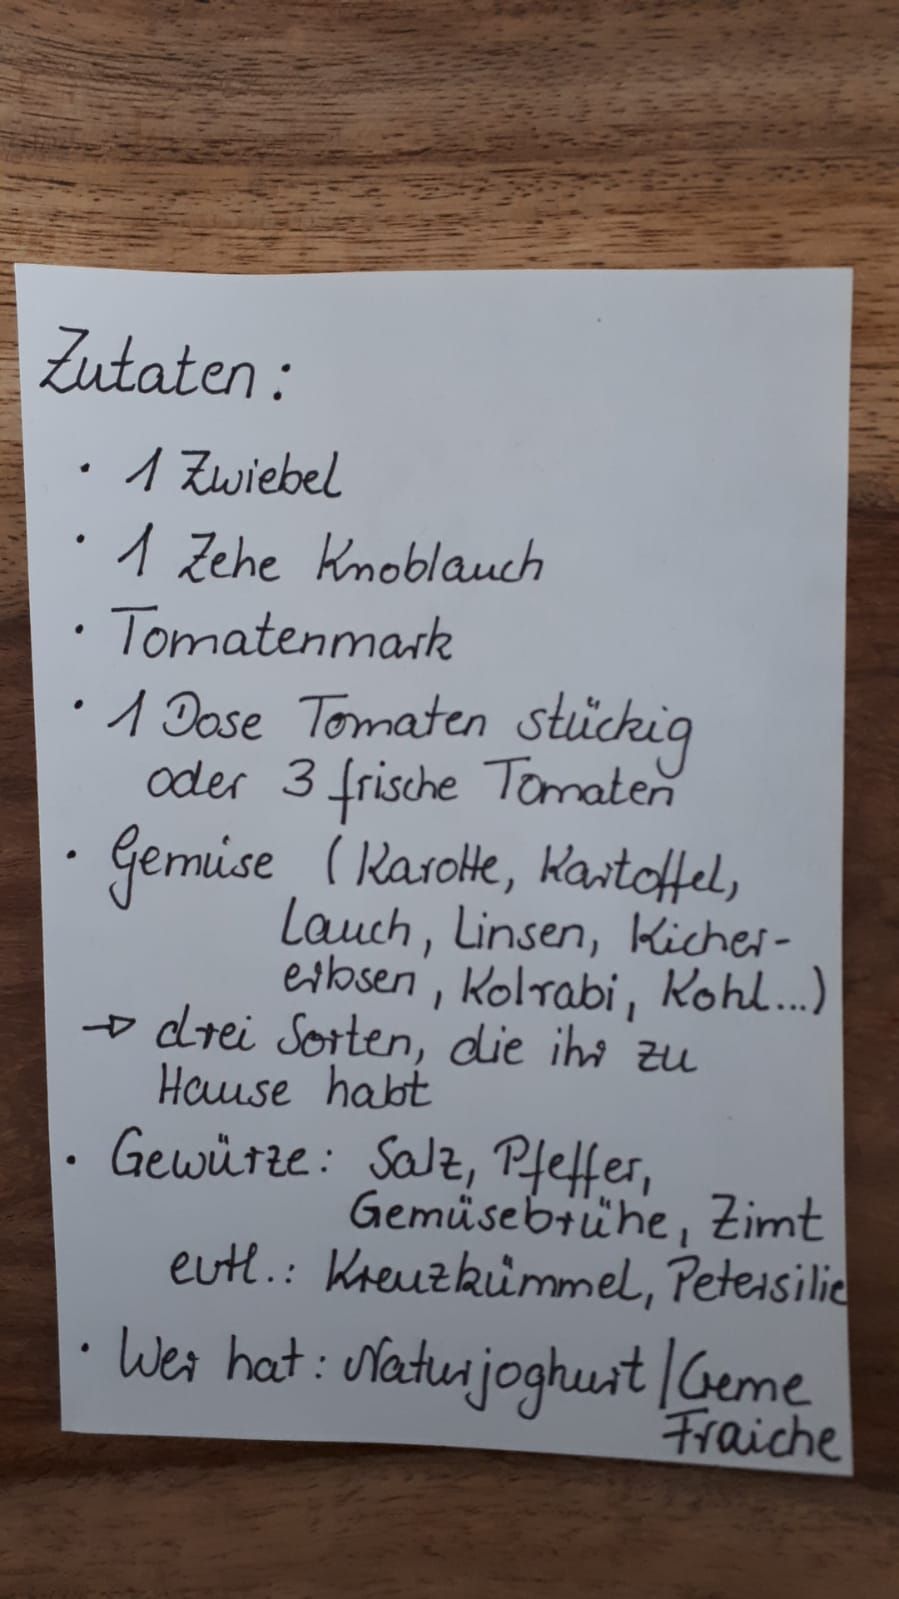 Zutaten:
• 1 Zwiebel
• 1 Zehe Knoblauch
• Tomatenmark
• 1 Dose Tomaten stückig
oder 3 frische Tomaten
• Gemüse (Karotte, Kartoffel,
Lauch, Linsen, Kicher-
erbsen, Kolrabi, Kohl...)
→ drei Sorten, die ihr zu
Hause habt
• Gewürze: Salz, Pfeffer,
Gemüsebrühe, Zimt
evtl.: Kreuzkümmel, Petersilie
• Wer hat: Naturjoghurt/Creme
Fraiche